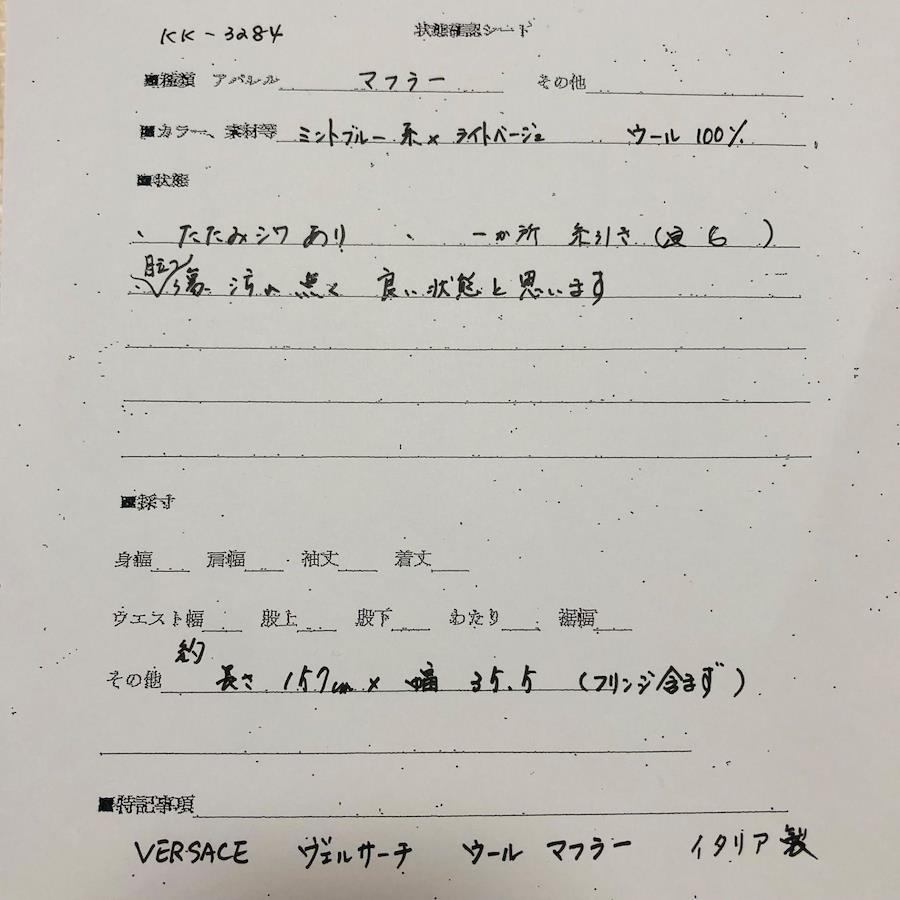 KK-3284 状態確認シート
■種類 アパレル マフラー その他
■カラー、素材等 ミントブルー系× ライトベージュ ウール 100%
■状態
、たたみシワあり 、一か所 糸引き
良い状態と思います
■採寸
身幅 肩幅 袖丈 着丈
ウエスト幅 股上 股下 わたり 裾幅
約
その他 長さ 157cm × 幅 35.5 (フリンジ含まず)
■特記事項
VERSACE ヴェルサーチ ウール マフラー イタリア製